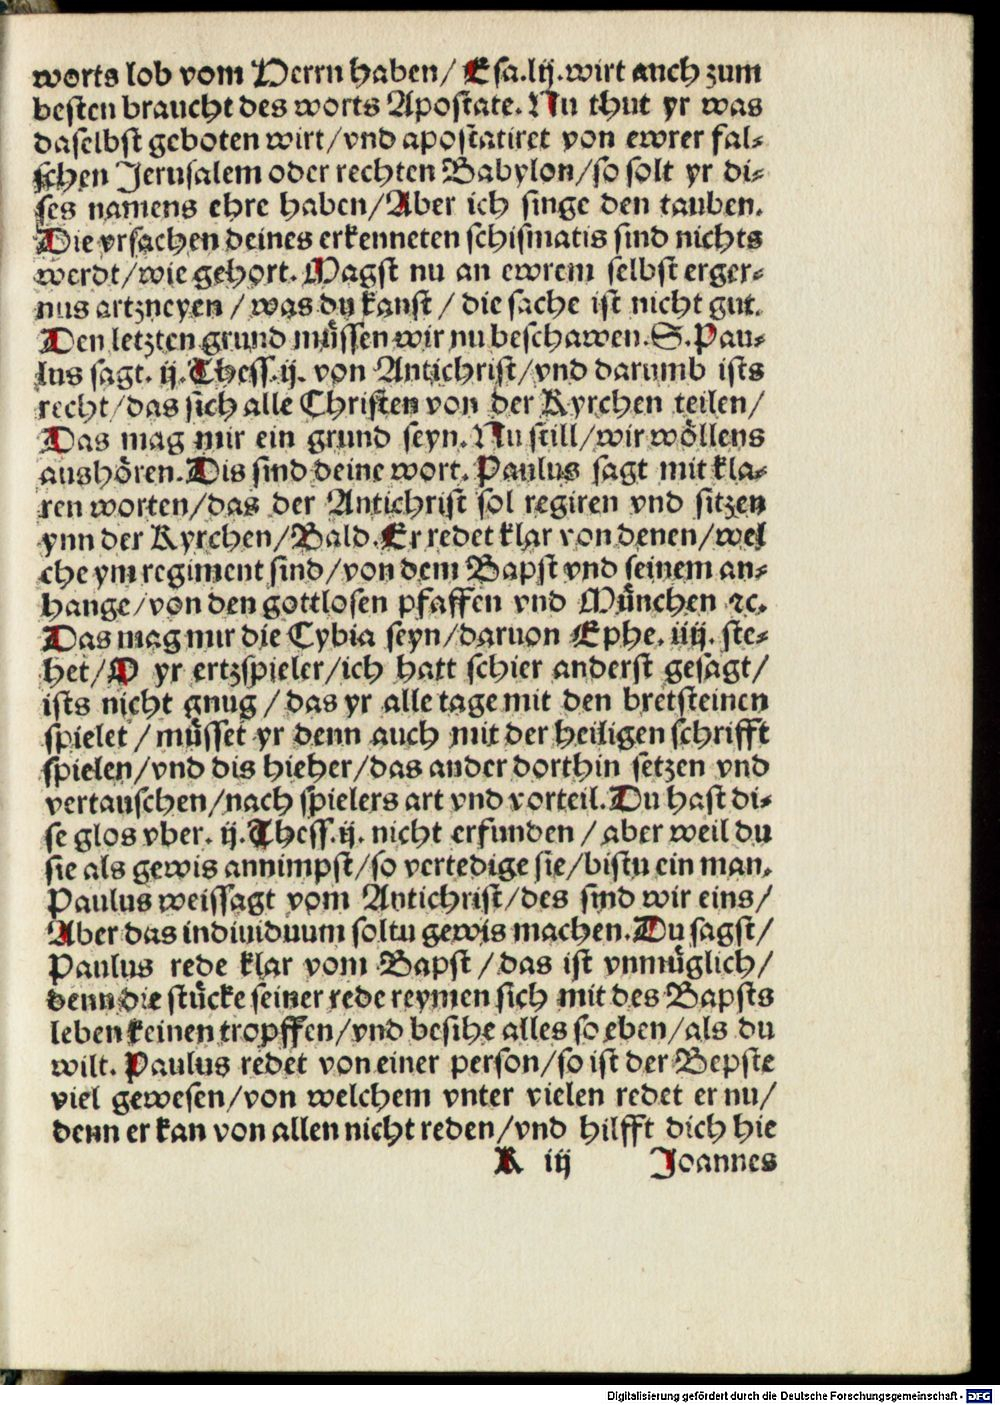 worts lob vom Herrn haben/ Esa.lij.wirt auch zum
besten braucht des worts Apostate. Nu thut yr was
daselbst geboten wirt/vnd apostatiret von ewrer fal-
schen Jerusalem oder rechten Babylon/so solt yr di-
ses namens ehre haben/Aber ich singe den tauben.
Die vrsachen deines erkenneten schismatis sind nichts
werdt/wie gehort. Magst nu an ewrem selbst erger-
nus artzneyen / was du kanst / die sache ist nicht gut.
Den letzten grund müssen wir nu beschawen. S. Pau-
lus sagt. ij. Thess.ij. von Antichrist/vnd darumb ists
recht/das sich alle Christen von der Kyrchen teilen/
Das mag mir ein grund seyn. Nu still/wir wöllens
aushören. Dis sind deine wort. Paulus sagt mit kla-
ren worten/das der Antichrist sol regiren vnd sitzen
ynn der Kyrchen/Bald. Er redet klar von denen/wel
che ym regiment sind/von dem Bapst vnd seinem an-
hange/von den gottlosen pfaffen vnd München ꝛc.
Das mag mir die Cybia seyn/daruon Ephe. iiij. ste-
het/O yr ertzspieler/ich hatt schier anderst gesagt/
ists nicht gnug / das yr alle tage mit den bretsteinen
spielet / müsset yr denn auch mit der heiligen schrifft
spielen/vnd dis hieher/das ander dorthin setzen vnd
vertauschen/nach spielers art vnd vorteil. Du hast di-
se glos vber. ij. Thess.ij. nicht erfunden / aber weil du
sie als gewis annimpst/so vertedige sie/bistu ein man.
Paulus weissagt vom Antichrist/des sind wir eins/
Aber das indiuiduum soltu gewis machen. Du sagst/
Paulus rede klar vom Bapst / das ist vnmüglich/
denn die stücke seiner rede reymen sich mit des Bapsts
leben keinen tropffen/vnd besihe alles so eben/als du
wilt. Paulus redet von einer person/so ist der Bepste
viel gewesen/von welchem vnter vielen redet er nu/
denn er kan von allen nicht reden/vnd hilfft dich hie
K iij Joannes
Digitalisierung gefördert durch die Deutsche Forschungsgemeinschaft - DFG